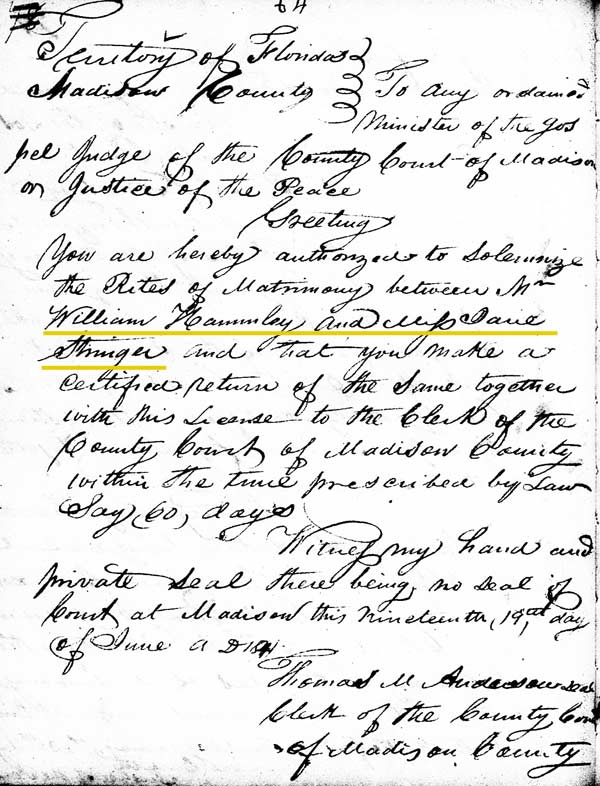 64
Territory of Florida
Madison County
To any ordained
Minister of the Gos
pel Judge of the County Court of Madison
or Justice of the Peace
Greeting
You are hereby authorized to Solemnize
the Rites of Matrimony between Mr
William Hammley and Miss Jane
Stringer and that you make a
Certified return of the Same together
with this License to the Clerk of the
County Court of Madison County
within the time prescribed by Law
Say (60) days
Witness my hand and
private Seal there being no Seal of
Court at Madison this nineteenth, 19th day
of June A D
Thomas M. Anderson Seal
Clerk of the County Court
of Madison County